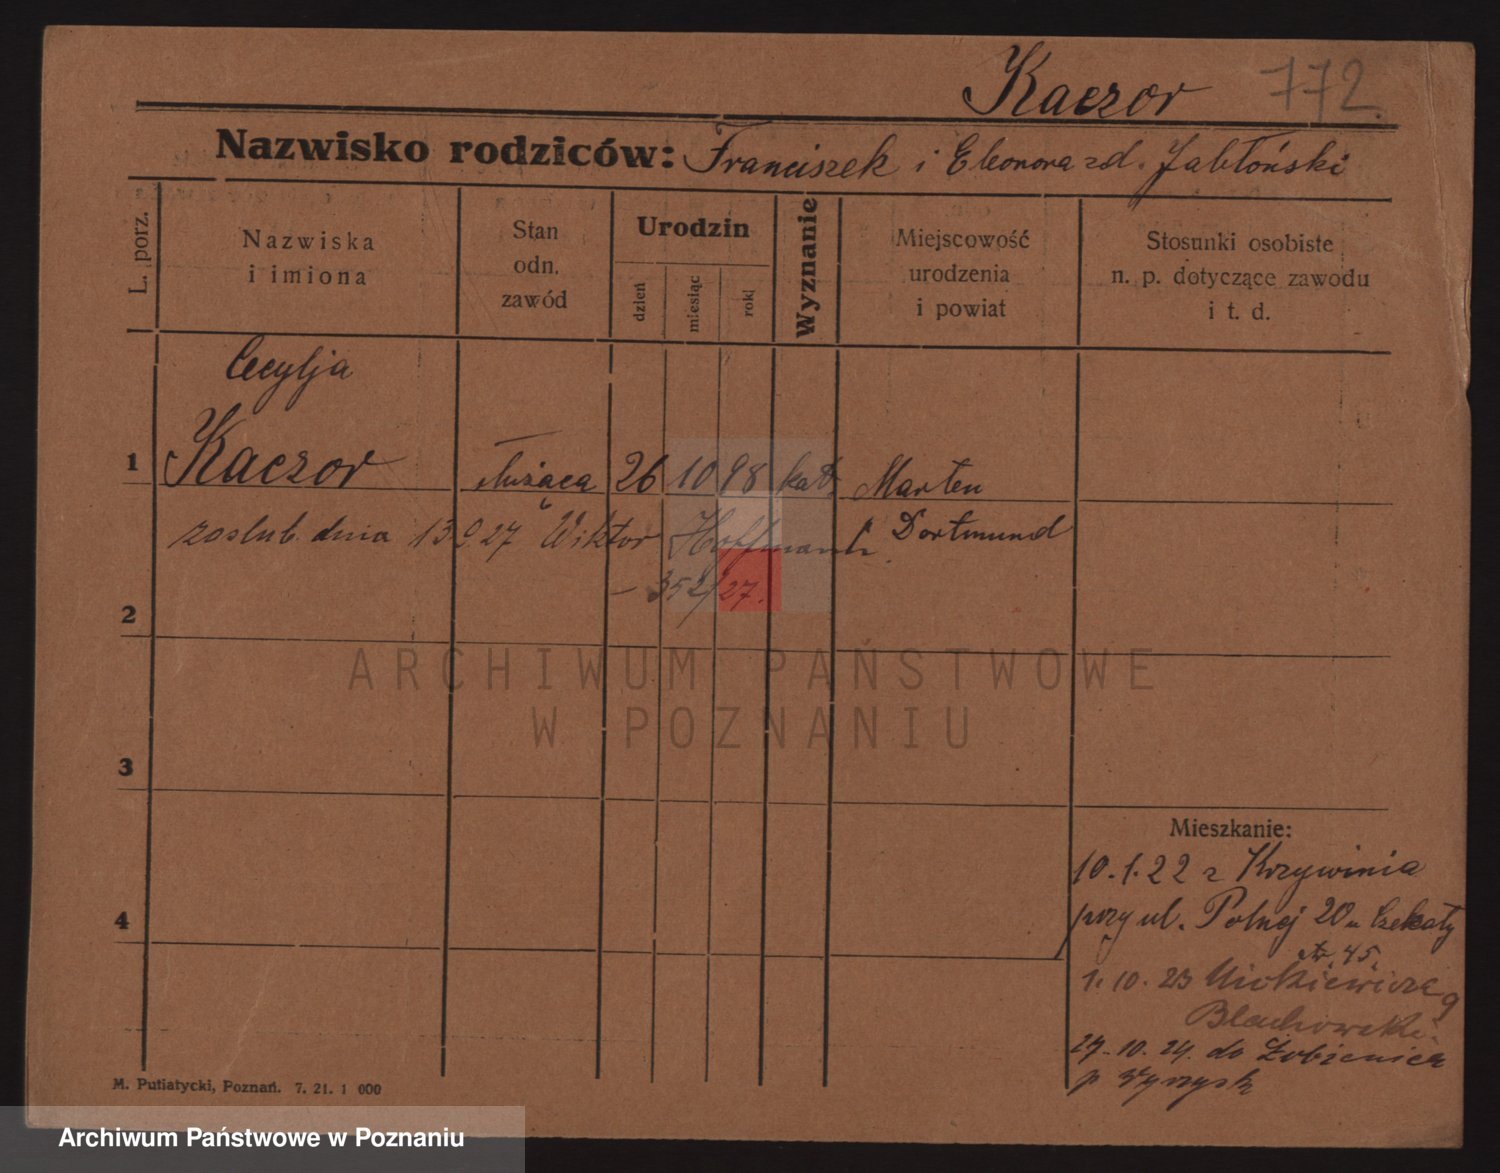 Kaczor 772.
Nazwisko rodziców: Franciszek i Eleonora zd. Jabłoński
L. porz.
Nazwiska
i imiona
Stan
odn.
zawód
Urodzin
dzień
miesiąc
rok
Wyznanie
Miejscowość
urodzenia
i powiat
Stosunki osobiste
n. p. dotyczące zawodu
i t. d.
Cecylja
1 Kaczor służąca 26 10 98 kat. Marten
zaslub. dnia 13 9. 27 Wiktor Hoffmann Dortmund
— 352/27.
2
ARCHIWUM PAŃSTWOWE
W POZNANIU
3
Mieszkanie:
10.1.22 z Krzywinia
4
przy ul. Polnej 20 u Czekały
45.
1.10.23 Mickiewicza 9
27.10.24. do Łobżenica
p Wyrzysk
M. Putiatycki, Poznań. 7. 21. 1 000
Archiwum Państwowe w Poznaniu